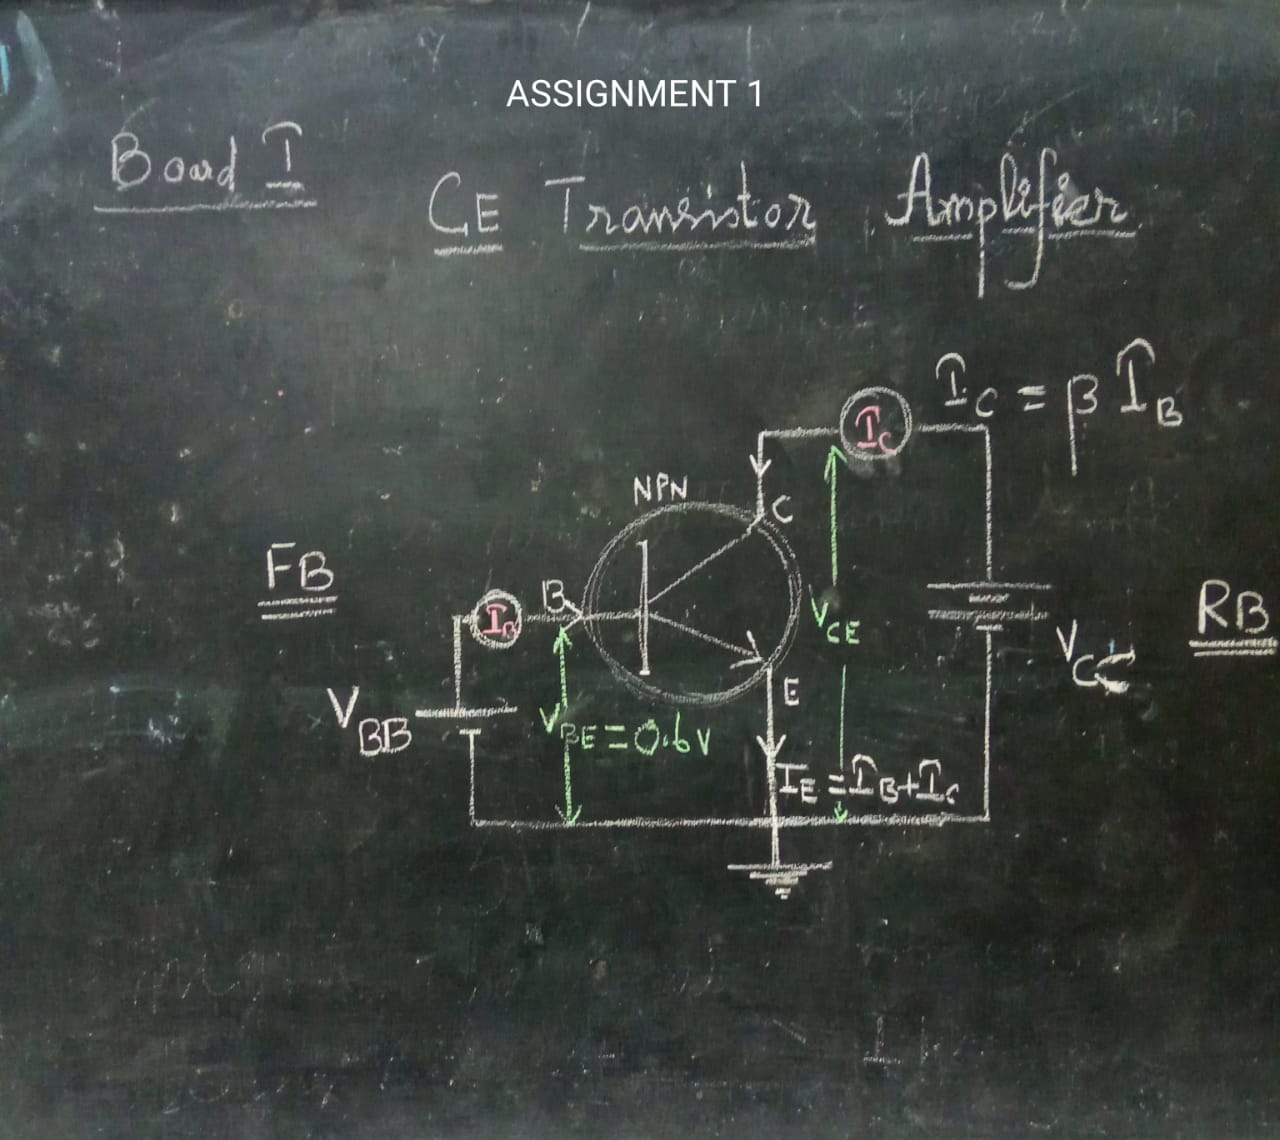 ASSIGNMENT 1
Board I
CE Transistor Amplifier
I_C = β I_B
I_C
NPN
C
FB
B
I_B
V_CE
RB
V_CC
E
V_BB
V_BE = 0.6V
I_E = I_B + I_C